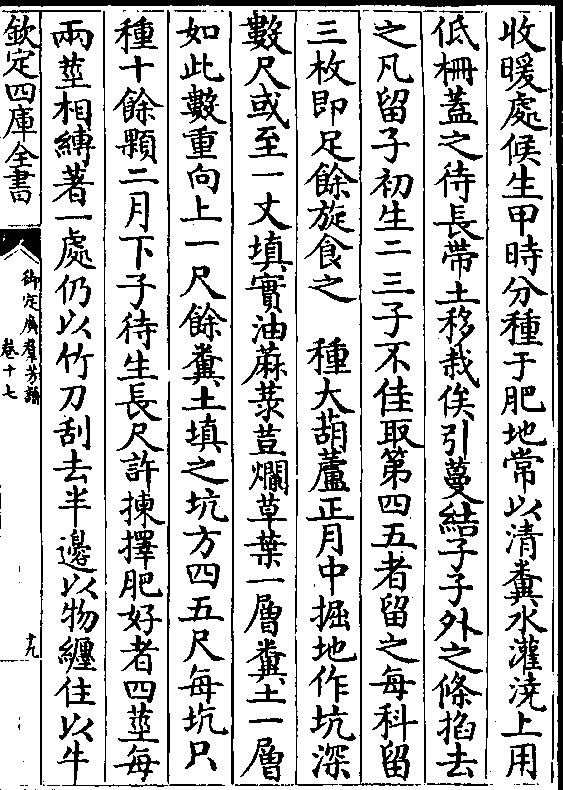 收暖處候生甲時分種于肥地常以清糞水灌澆上用
低柵蓋之待長帶土移栽俟引蔓結子子外之條掐去
之凡留子初生二三子不佳取第四五者留之每科留
三枚即足餘旋食之　種大葫蘆正月中掘地作坑深
數尺或至一丈填實油蔴菉荳爛草葉一層糞土一層
如此數重向上一尺餘糞土填之坑方四五尺每坑只
種十餘顆二月下子待生長尺許揀擇肥好者四莖每
兩莖相縛著一處仍以竹刀刮去半邊以物纏住以牛
欽定四庫全書
御定廣羣芳譜
卷十七
十九